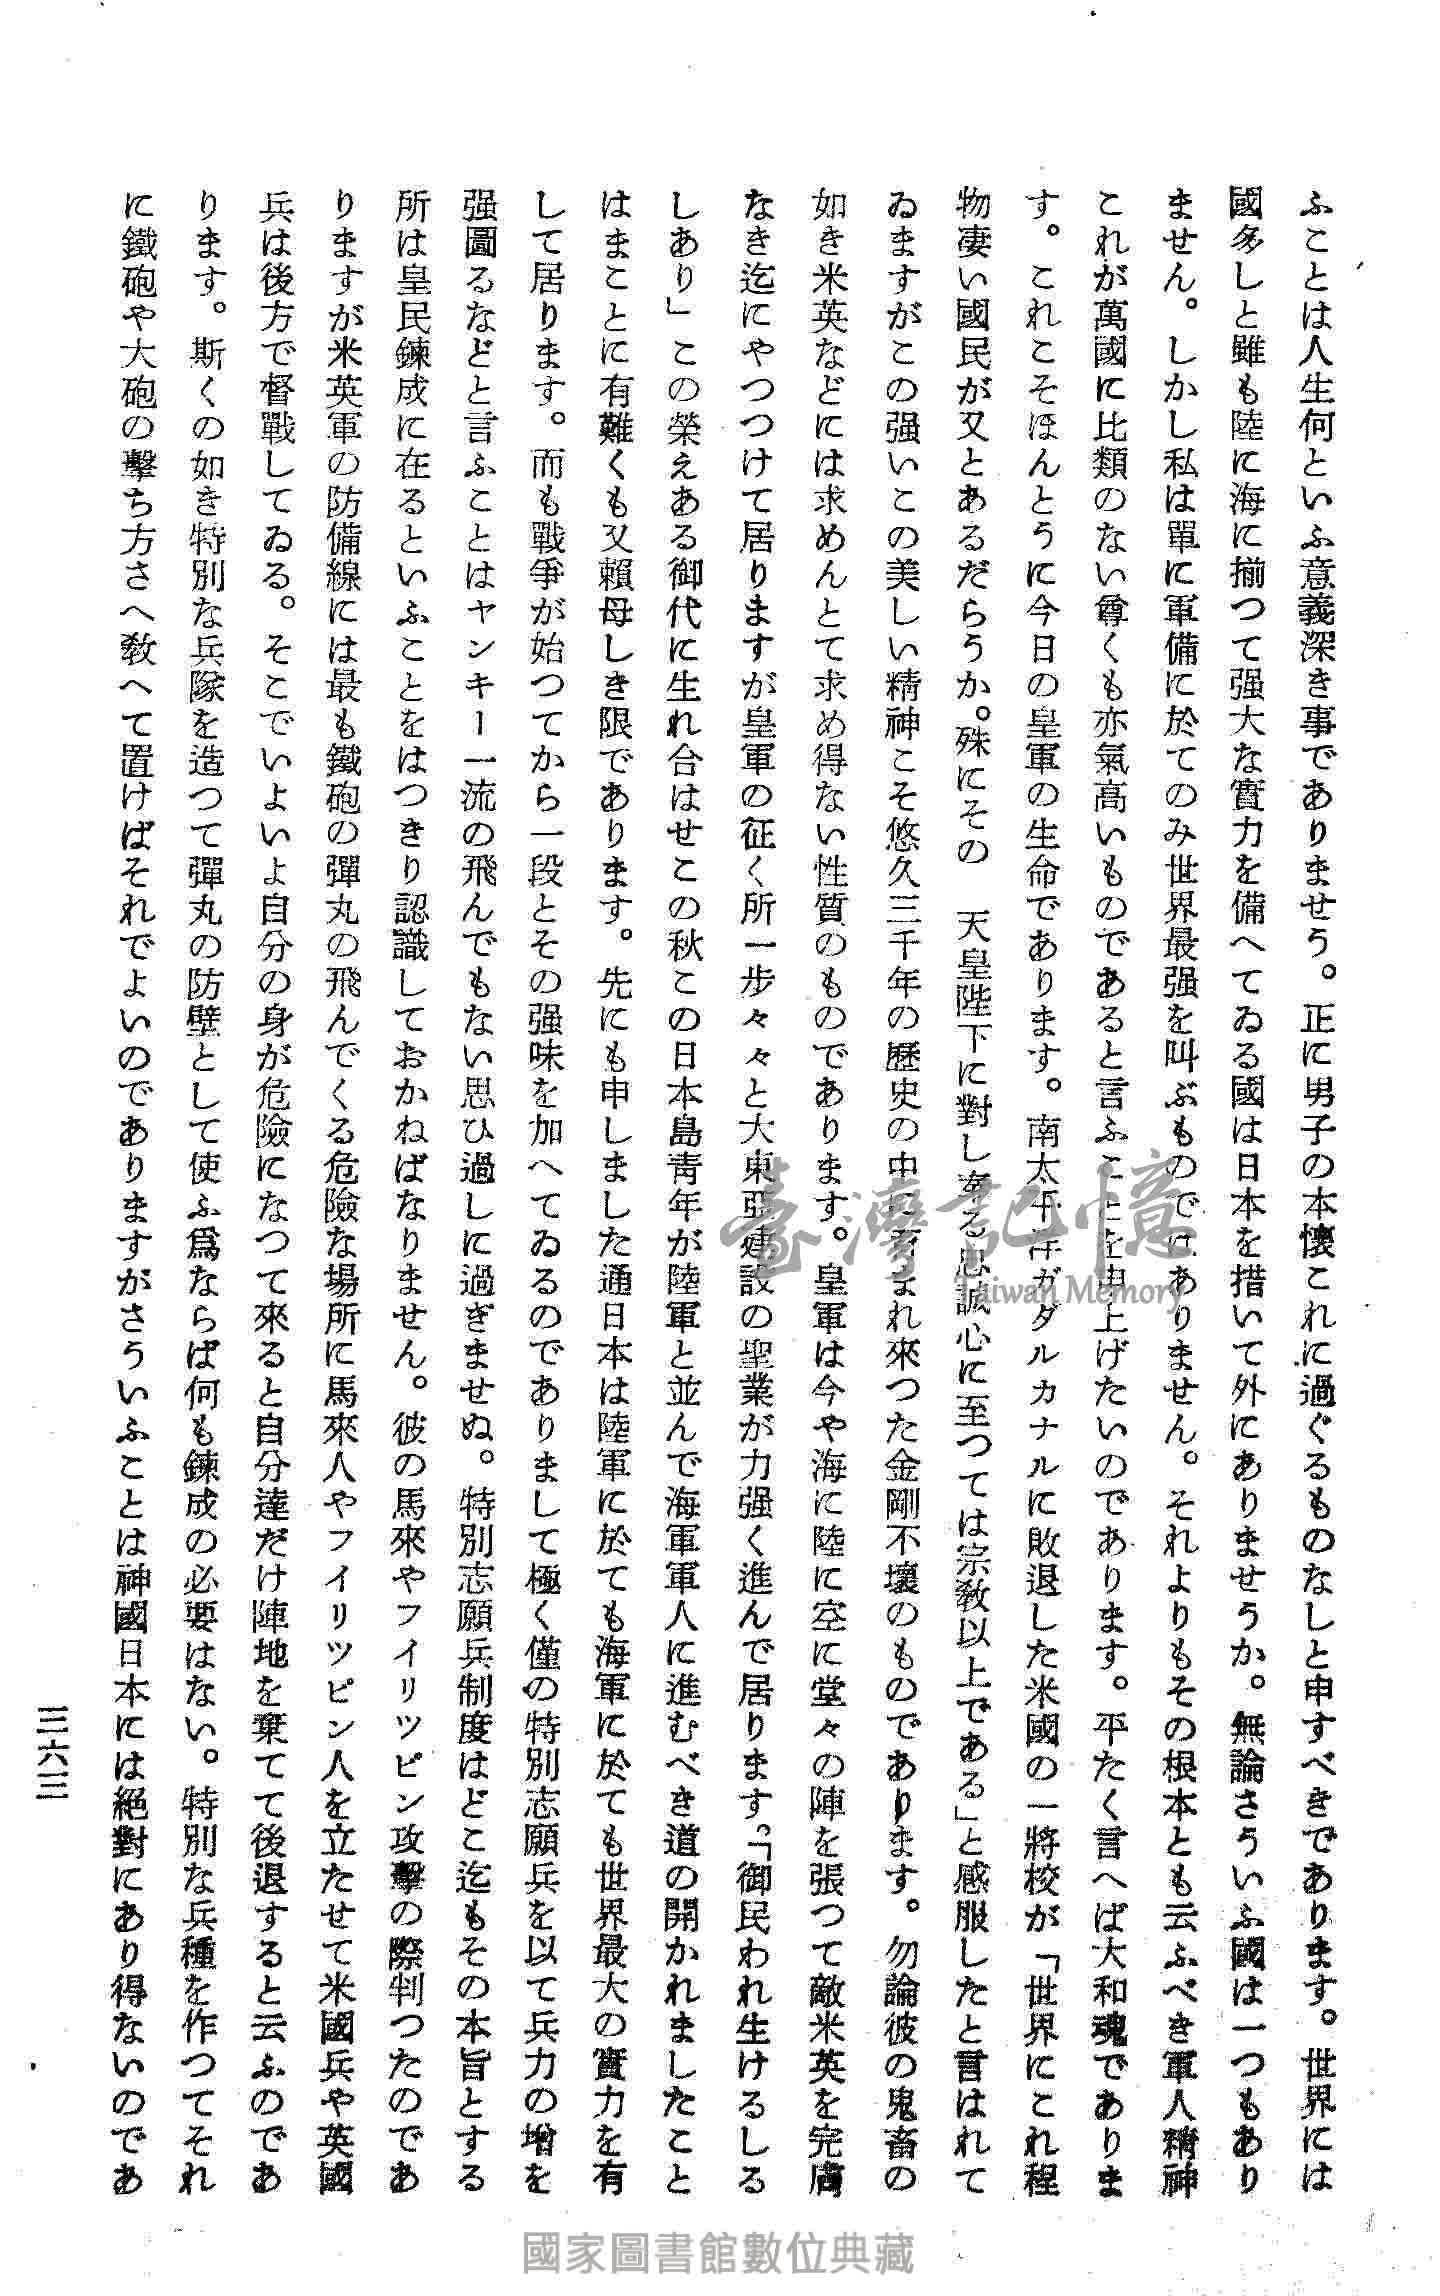 ふことは人生何といふ意義深き事でありませう。正に男子の本懷これに過ぐるものなしと申すべきであります。世界には
國多しと雖も陸に海に揃つて强大な實力を備へてゐる國は日本を措いて外にありませうか。無論さういふ國は一つもあり
ません。しかし私は單に軍備に於てのみ世界最强を叫ぶものではありません。それよりもその根本とも云ふべき軍人精神
これが萬國に比類のない尊くも亦氣高いものであると言ふことを申上げたいのであります。平たく言へば大和魂でありま
す。これこそほんとうに今日の皇軍の生命であります。南太平洋ガダルカナルに敗退した米國の一將校が「世界にこれ程
物凄い國民が又とあるだらうか。殊にその　天皇陛下に對し奉る忠誠心に至つては宗敎以上である」と感服したと言はれて
ゐますがこの强いこの美しい精神こそ悠久三千年の歷史の中に育まれ來つた金剛不壞のものであります。勿論彼の鬼畜の
如き米英などには求めんとて求め得ない性質のものであります。皇軍は今や海に陸に空に堂々の陣を張つて敵米英を完膚
なき迄にやつつけて居りますが皇軍の征く所一步々々と大東亞建設の聖業が力强く進んで居ります。「御民われ生けるしる
しあり」この榮えある御代に生れ合はせこの秋この日本島靑年が陸軍と並んで海軍軍人に進むべき道の開かれましたこと
はまことに有難くも又賴母しき限であります。先にも申しました通日本は陸軍に於ても海軍に於ても世界最大の實力を有
して居ります。而も戰爭が始つてから一段とその强味を加へてゐるのでありまして極く僅の特別志願兵を以て兵力の增を
强圖るなどと言ふことはヤンキー一流の飛んでもない思ひ過しに過ぎませぬ。特別志願兵制度はどこ迄もその本旨とする
所は皇民鍊成に在るといふことをはつきり認識しておかねばなりません。彼の馬來やフイリツピン攻擊の際判つたのであ
りますが米英軍の防備線には最も鐵砲の彈丸の飛んでくる危險な場所に馬來人やフイリツピン人を立たせて米國兵や英國
兵は後方で督戰してゐる。そこでいよいよ自分の身が危險になつて來ると自分達だけ陣地を棄てて後退すると云ふのであ
ります。斯くの如き特別な兵隊を造つて彈丸の防壁として使ふ爲ならば何も鍊成の必要はない。特別な兵種を作つてそれ
に鐵砲や大砲の擊ち方さへ敎へて置けばそれでよいのでありますがさういふことは神國日本には絕對にあり得ないのであ
三六三
臺灣記憶
Taiwan Memory
國家圖書館數位典藏